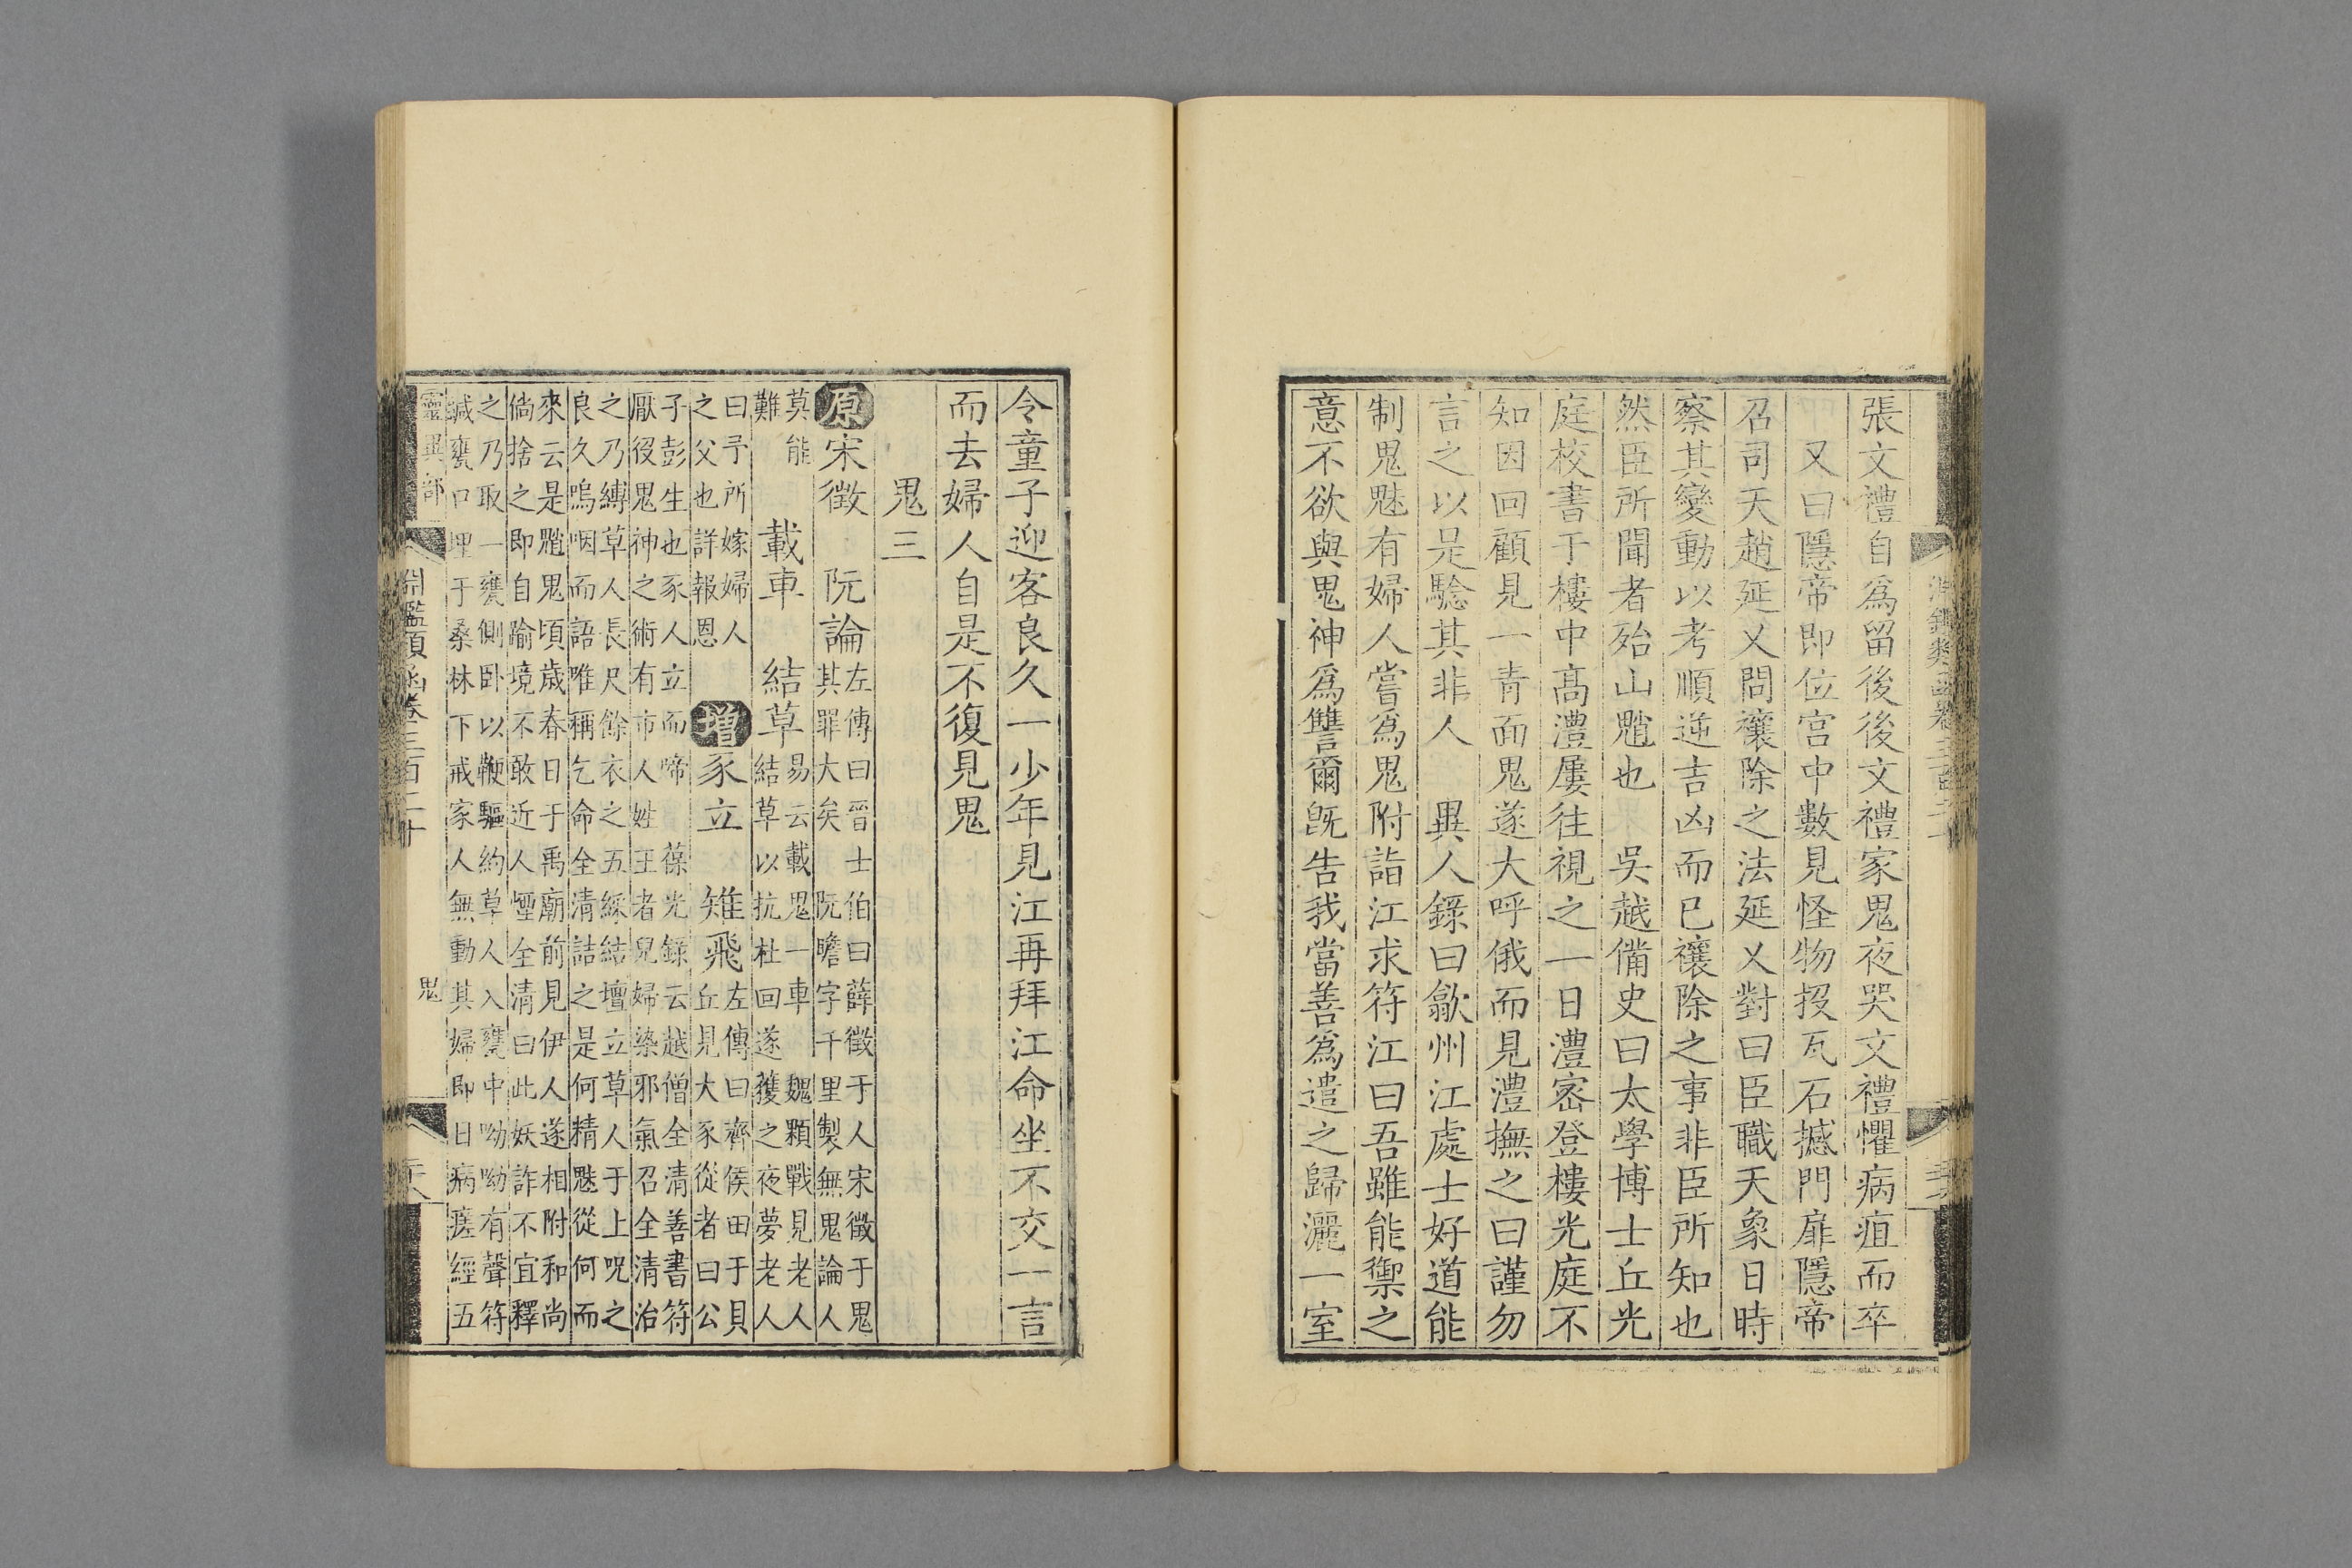 淵鑑類函卷三百二十
張文禮自爲留後後文禮家鬼夜哭文禮懼病疽而卒
又曰隱帝即位宮中數見怪物投瓦石撼門扉隱帝
召司天趙延乂問禳除之法延乂對曰臣職天象日時
察其變動以考順逆吉凶而已禳除之事非臣所知也
然臣所聞者殆山魈也 吳越備史曰太學博士丘光
庭校書于樓中高澧屢往視之一日澧密登樓光庭不
知因回顧見一青面鬼遂大呼俄而見澧撫之曰謹勿
言之以是驗其非人 異人錄曰歙州江處士好道能
制鬼魅有婦人嘗爲鬼附詣江求符江曰吾雖能禦之
意不欲與鬼神爲讐爾既告我當善爲遣之歸灑一室
令童子迎客良久一少年見江再拜江命坐不交一言
而去婦人自是不復見鬼
鬼三
原 宋徵 阮論
左傳曰晉士伯曰薛徵于人宋徵于鬼
其罪大矣 阮瞻字千里製無鬼論人
莫能
難
載車 結草
易云載鬼一車 魏顆戰見老人
結草以抗杜回遂獲之夜夢老人
曰予所嫁婦人
之父也詳報恩
增 豕立 雉飛
左傳曰齊侯田于貝
丘見大豕從者曰公
子彭生也豕人立而啼 葆光錄云越僧全清善書符
厭役鬼神之術有市人姓王者兒婦染邪氣召全清治
之乃縛草人長尺餘衣之五綵結壇立草人于上呪之
良久嗚咽而語唯稱乞命全清詰之是何精魅從何而
來云是魈鬼頃歲春日于禹廟前見伊人遂相附和尚
倘捨之即自踰境不敢近人煙全清曰此妖詐不宜釋
之乃取一甕側卧以鞭驅約草人入甕中呦呦有聲符
緘甕口埋于桑林下戒家人無動其婦即日病瘥經五
靈異部 鬼
淵鑑類函卷三百二十